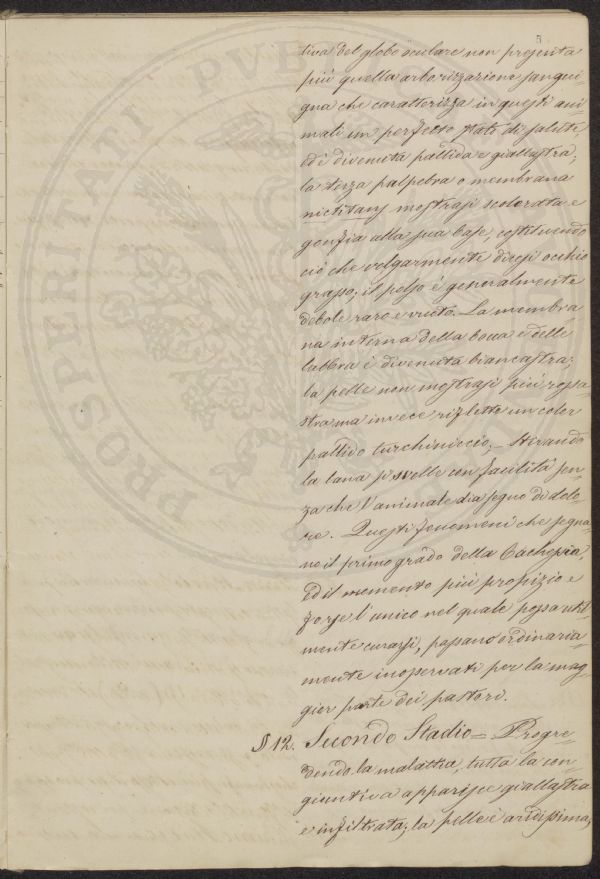 5
tiva del globo oculare non presenta
più quella arborizzazione sangui-
gna che caratterizza in questi ani-
mali un perfetto stato di salute,
ed è divenuta pallida e giallastra;
la terza palpebra o membrana
nictitans mostrasi scolorata e
gonfia alla sua base, costituendo
ciò che volgarmente dicesi occhio
grasso; il polso è generalmente
debole raro e vuoto. La membra
na interna della bocca e delle
labbra è divenuta biancastra;
la pelle non mostrasi più rossa
stra ma invece riflette un color
pallido turchiniccio; - Stirando
la lana si svelle con facilità sen-
za che l'animale dia segno di dolo-
re. Questi fenomeni che segna-
no il primo grado della Cachessia,
ed il momento più propizio e
forse l'unico nel quale possa util-
mente curarsi, passano ordinaria-
mente inosservati per la mag-
gior parte dei pastori.
§ 12. Secondo Stadio = Progre-
dendo la malattia, tutta la con-
giuntiva apparisce giallastra
e infiltrata; la pelle è aridissima,
PROSPERITATI PVB